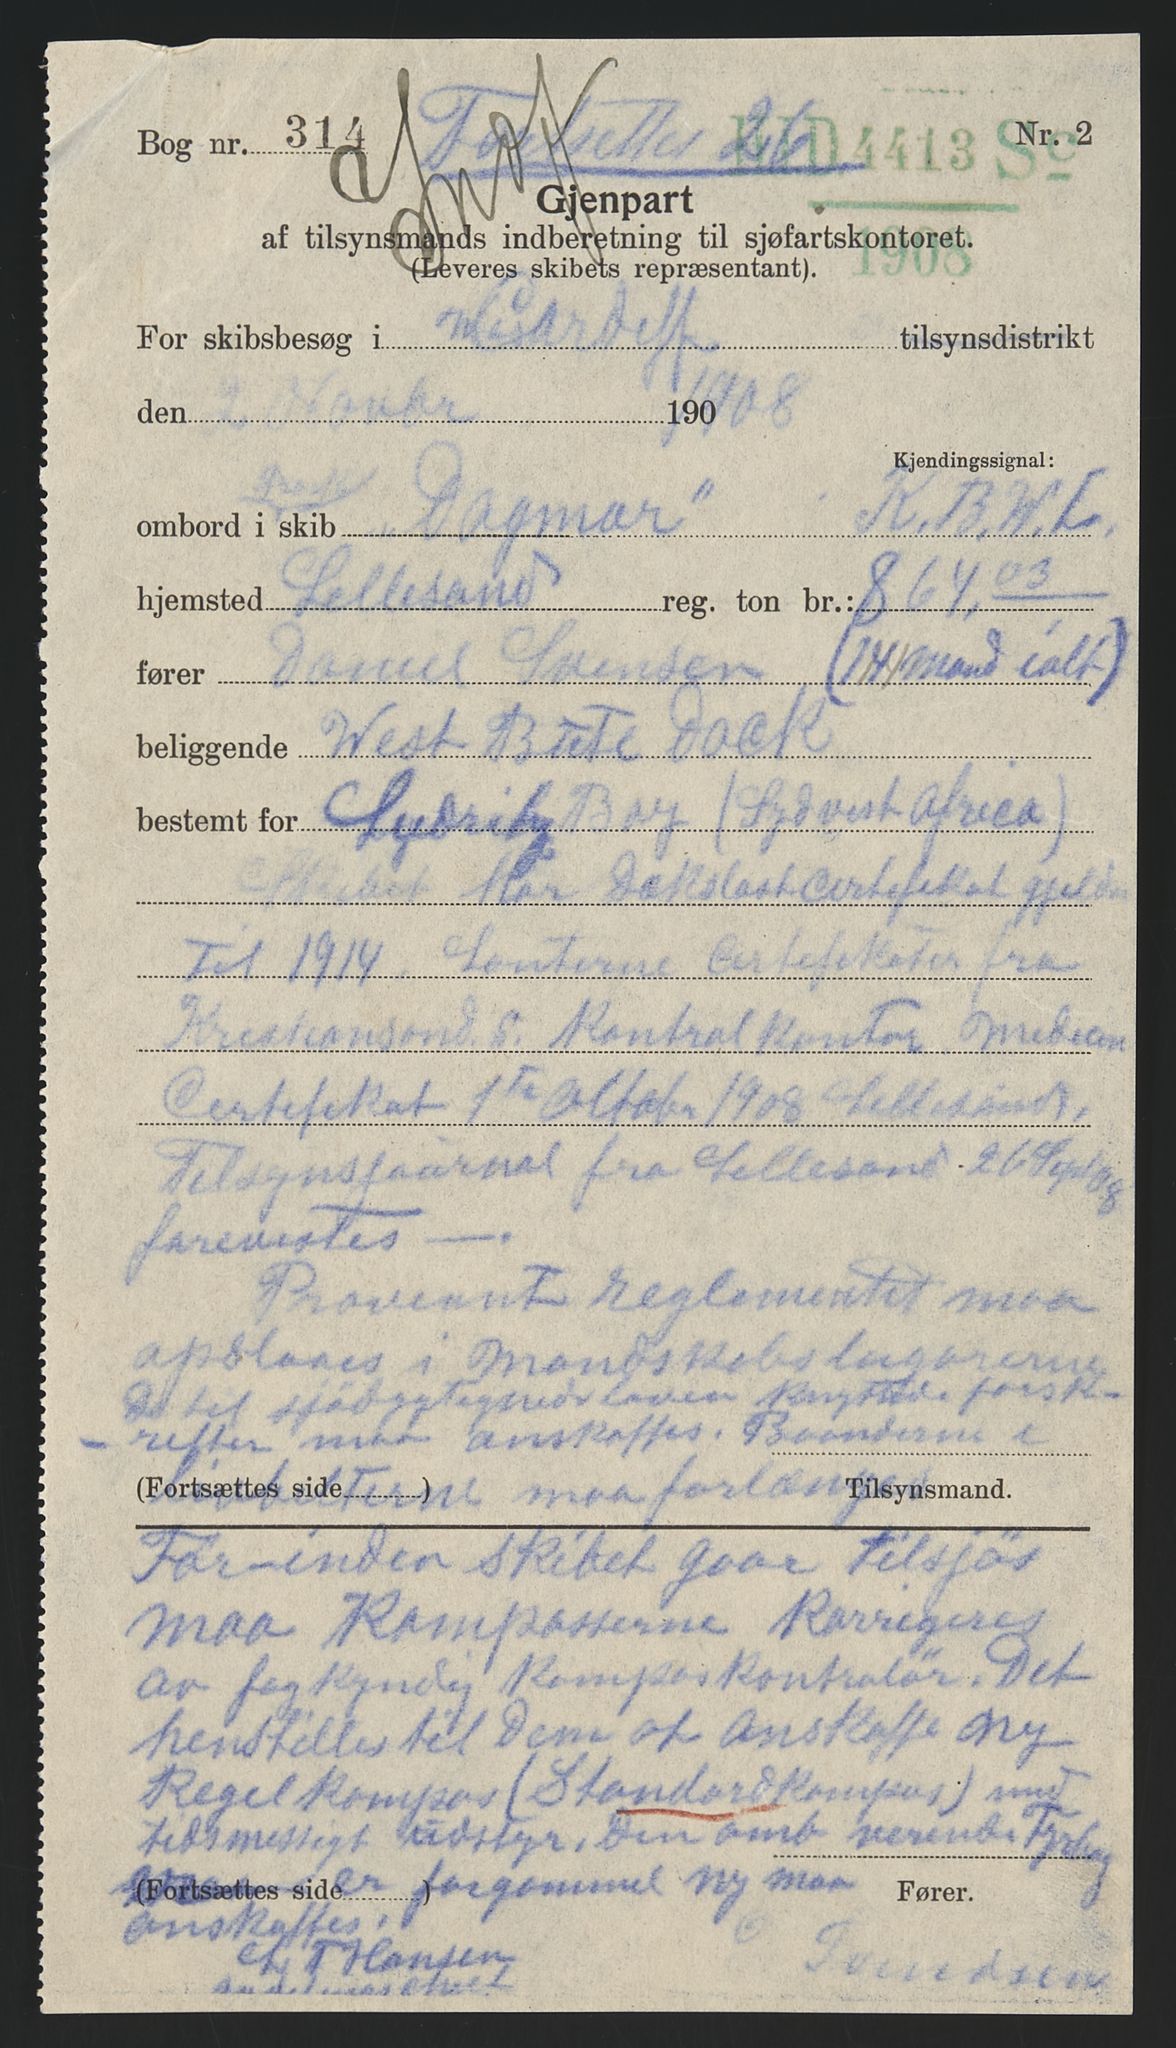 Bog nr. 314 Fortsettes 26 EID 4413 Sc Nr. 2
Gjenpart
af tilsynsmands indberetning til sjøfartskontoret.
1908
(Leveres skibets repræsentant).
For skibsbesøg i Cardiff tilsynsdistrikt
den 2 Novbr 190 1908
Kjendingssignal:
ombord i skib „Dagmar" K.B.W.L.
hjemsted Lillesand reg. ton br.: 864,03
fører Daniel Svensen (14 mand ialt)
beliggende West Bute Dock
bestemt for Lydritz Bay (Sydvest Africa)
Skibet har Dækslast Certefikat gjelder
til 1914. Lanterne Certefikater fra
Kristiansand. S. Kontrol kontor Medecin
Certefikat 1ste Oktobr 1908 Lillesand,
Tilsynsjournal fra Lillesand 26 Sept 08
forevistes —.
Proviant reglementet maa
opslaaes i Mandskabslugarerne
De til sjödygtighedsloven knyttede forsk-
-rifter maa anskaffes. Baandene i
(Fortsættes side ) maa forlænges Tilsynsmand.
For-inden skibet gaar tilsjøs
maa Kompasserne Korrigeres
av fagkyndig Kompaskontrolör. Det
henstilles til Dem at anskaffe ny
Regelkompas (Standardkompas) med
tidsmessigt udstyr. Den omb verende
(Fortsættes side ) er forgammel ny maa Fører.
anskaffes.
Chr T Hansen
Svendsen